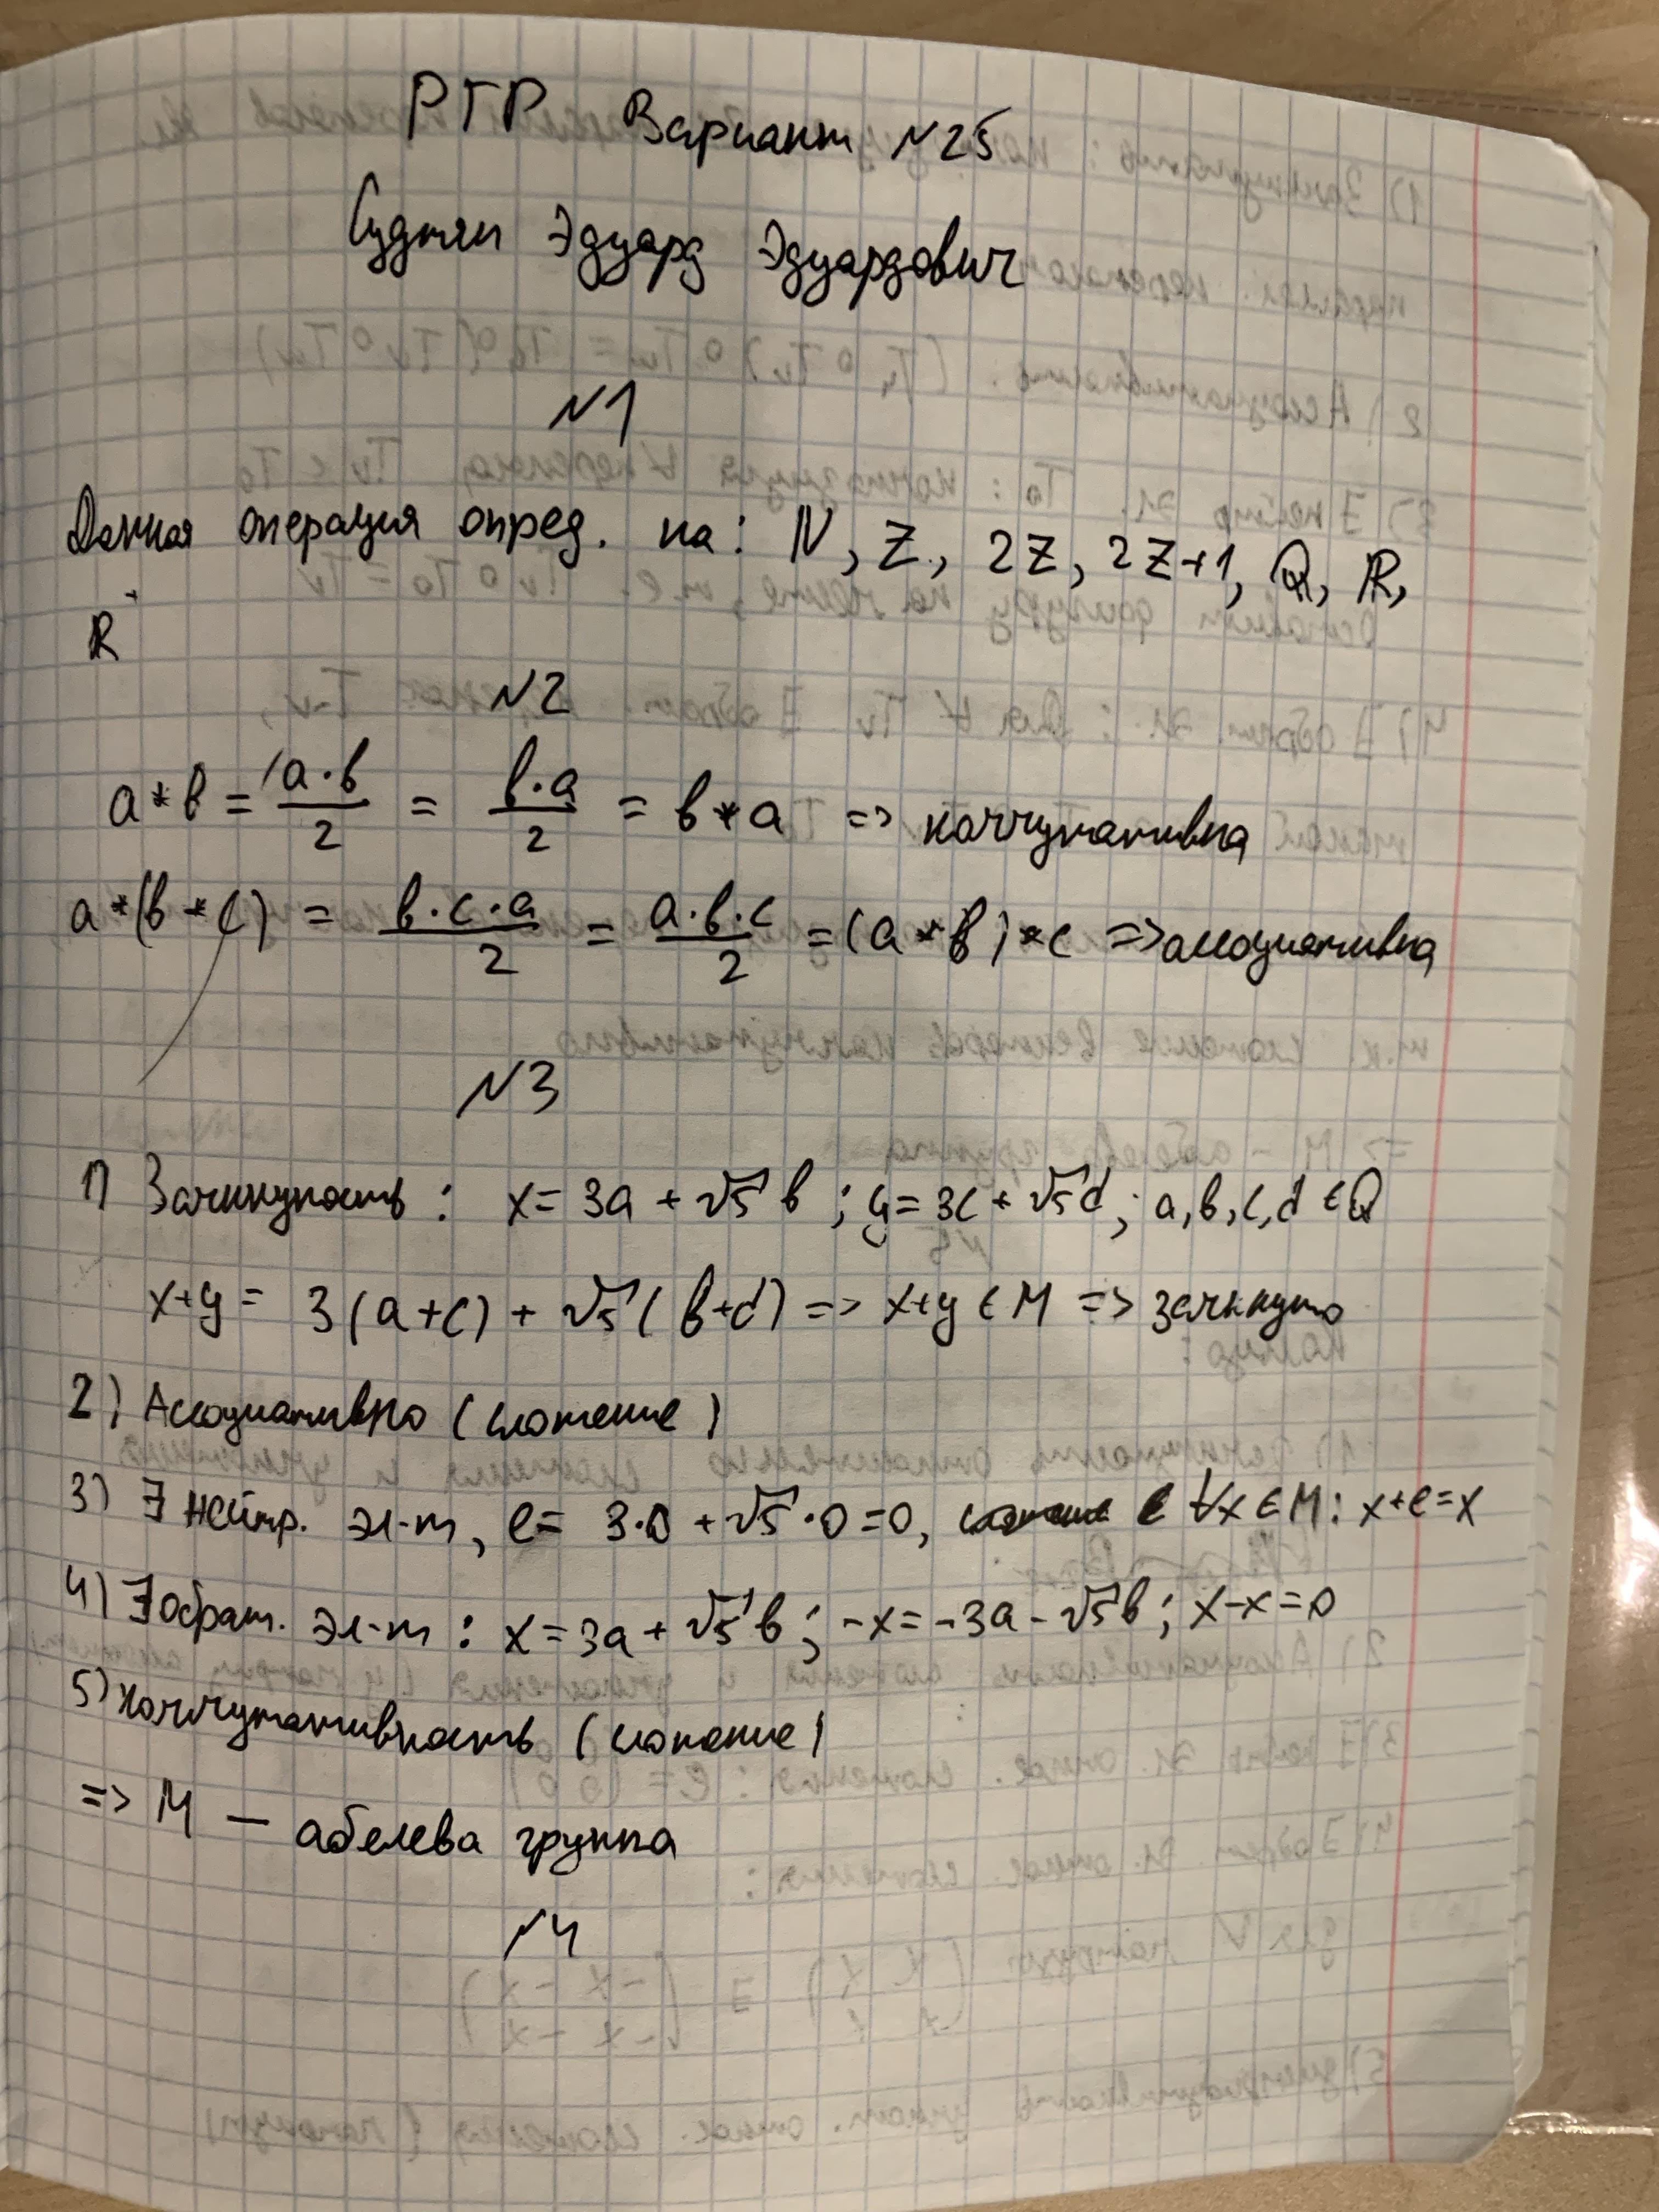 РГР Вариант №25
Эдуард Эдуардович
№1
Данная операция опред. на: N, Z, 2Z, 2Z+1, Q, R,
R⁺
№2
a*b = a·b/2 = b·a/2 = b*a => коммутативна
a*(b*c) = b·c·a/2 = a·b·c/2 = (a*b)*c => ассоциативна
№3
1) Замкнутость: x = 3a + √5 b; y = 3c + √5 d; a,b,c,d ∈ Q
x+y = 3(a+c) + √5 (b+d) => x+y ∈ M => замкнуто
2) Ассоциативно (сложение)
3) ∃ нейтр. эл-т, e = 3·0 + √5·0 = 0, ∀x ∈ M: x+e=x
4) ∃ обрат. эл-т: x = 3a + √5 b; -x = -3a - √5 b; x-x=0
5) Коммутативность (сложение)
=> M — абелева группа
№4